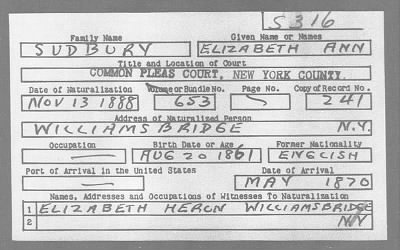 S316
Family Name Given Name or Names
SUDBURY ELIZABETH ANN
Title and Location of Court
COMMON PLEAS COURT, NEW YORK COUNTY.
Date of Naturalization Volume or Bundle No. Page No. Copy of Record No.
NOV 13 1888 653 241
Address of Naturalized Person
WILLIAMSBRIDGE N.Y.
Occupation Birth Date or Age Former Nationality
AUG 20 1861 ENGLISH
Port of Arrival in the United States Date of Arrival
MAY 1870
Names, Addresses and Occupations of Witnesses To Naturalization
1 ELIZABETH HERON WILLIAMSBRIDGE
2 NY